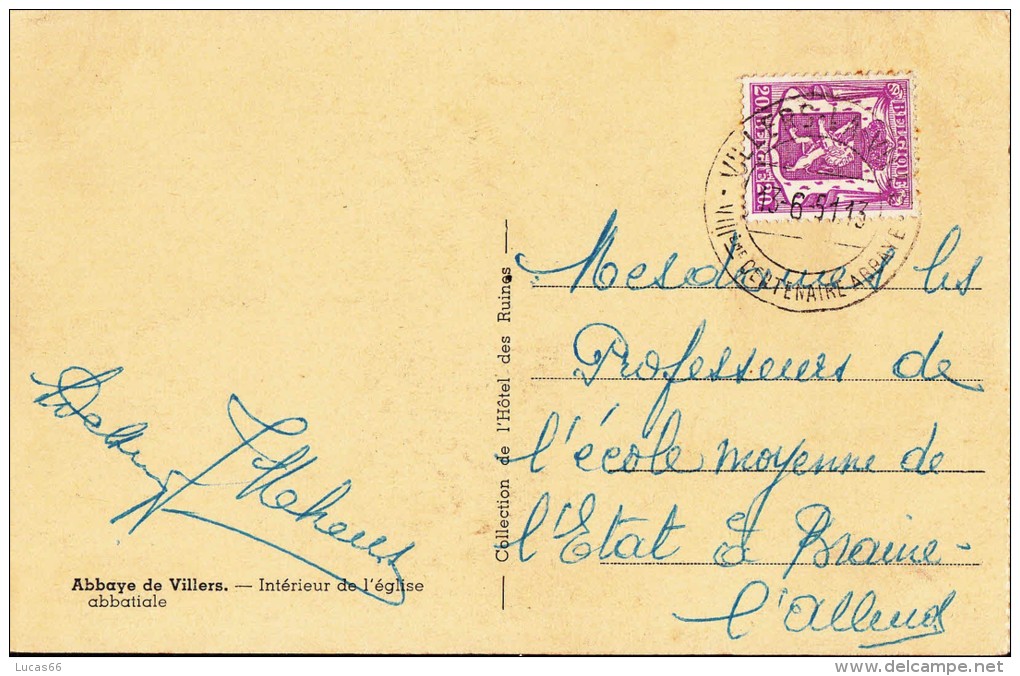 20 BELGIE 20
BELGIQUE
VILLERS-LA-VILLE
13-6-51.13
VIIIème CENTENAIRE ABBAYE
Mesdames les
Professeurs de
l'école moyenne de
l'Etat à Braine-
l'Alleud
Collection de l'Hôtel des Ruines
Abbaye de Villers. — Intérieur de l'église
abbatiale
Lucas66
www.delcampe.net